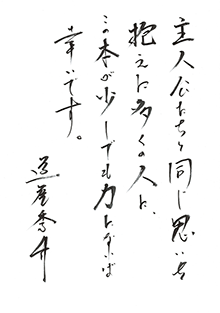 主人公たちと同じ思いを
抱えた多くの人に、
この本が少しでも力になれば
幸いです。